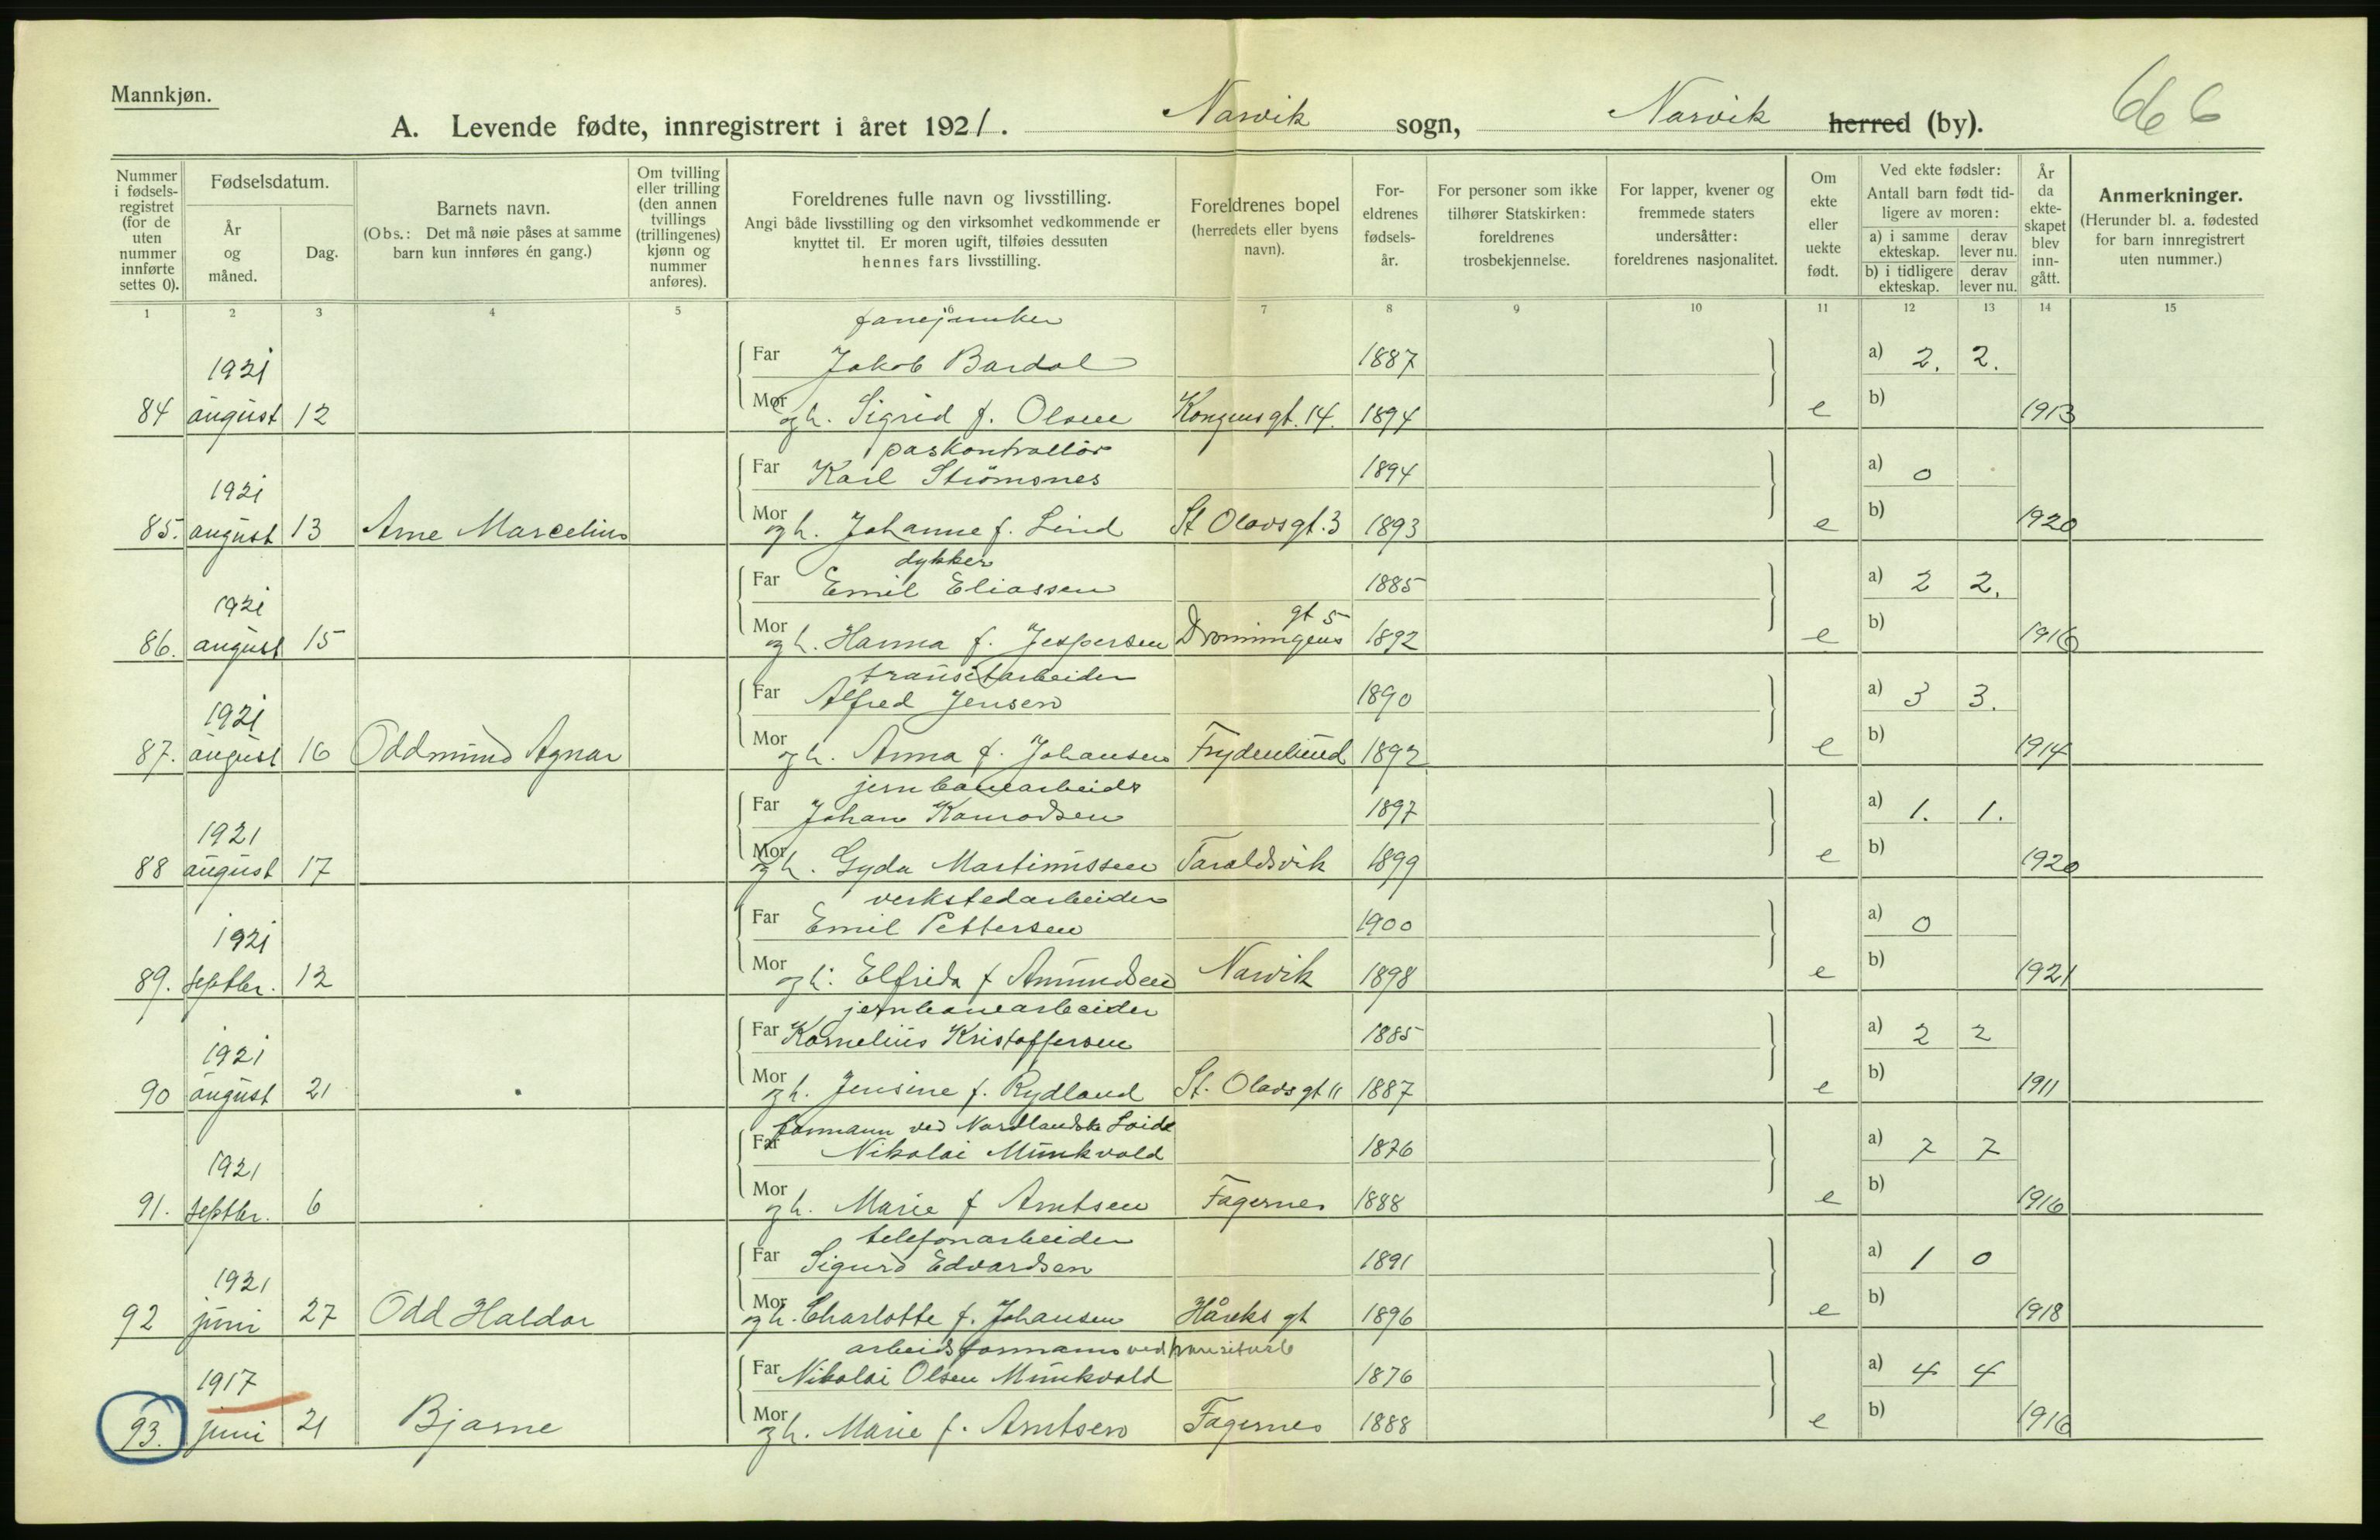 Mannkjøn.
A. Levende fødte, innregistrert i året 1921. Narvik sogn, Narvik herred (by). 66
Nummer i fødsels-registret (for de uten nummer innførte settes 0).
Fødselsdatum.
År og måned.
Dag.
Barnets navn.
(Obs.: Det må nøie påses at samme barn kun innføres én gang.)
Om tvilling eller trilling (den annen tvillings (trillingenes) kjønn og nummer anføres).
Foreldrenes fulle navn og livsstilling.
Angi både livsstilling og den virksomhet vedkommende er knyttet til. Er moren ugift, tilføies dessuten hennes fars livsstilling.
Foreldrenes bopel (herredets eller byens navn).
For-eldrenes fødsels-år.
For personer som ikke tilhører Statskirken: foreldrenes trosbekjennelse.
For lapper, kvener og fremmede staters undersåtter: foreldrenes nasjonalitet.
Om ekte eller uekte født.
Ved ekte fødsler:
Antall barn født tid-ligere av moren:
a) i samme ekteskap. derav lever nu.
b) i tidligere ekteskap. derav lever nu.
År da ekte-skapet blev inn-gått.
Anmerkninger.
(Herunder bl. a. fødested for barn innregistrert uten nummer.)
1 2 3 4 5 6 7 8 9 10 11 12 13 14 15
fanejunker
1921 Far Jakob Bardal 1887 a) 2. 2.
84 august 12 Mor og h. Sigrid f. Olsen Kongensgt. 14. 1894 e b) 1913
paskontrollør
1921 Far Karl Strømsnes 1894 a) 0
85. august 13 Arne Marcelius Mor og h. Johanne f. Lind St Olavsgt. 3 1893 e b) 1920
dykker
1921 Far Emil Eliassen 1885 a) 2 2.
gt 5
86. august 15 Mor og h. Hanna f. Jespersen Dronningens 1892 e b) 1916
transitarbeider
1921 Far Alfred Jensen 1890 a) 3 3.
87. august 16 Oddmund Agnar Mor og h. Anna f. Johansen Frydenlund 1892 e b) 1914
jernbanearbeidr
1921 Far Johan Konradsen 1897 a) 1. 1.
88 august 17 Mor og h. Gyda Martinussen Taraldsvik 1899 e b) 1920
verkstedarbeider
1921 Far Emil Pettersen 1900 a) 0
89. septbr. 12 Mor og h. Elfrida f Amundsen Narvik 1898 e b) 1921
jernbanearbeider
1921 Far Kornelius Kristoffersen 1885 a) 2 2
90 august 21 Mor og h. Jensine f. Rydland St. Olavsgt 11 1887 e b) 1911
formann ved Nordlandske
1921 Far Nikolai Munkvold 1876 a) 7 7
91. septbr. 6 Mor og h. Marie f Arntsen Fagernes 1888 e b) 1916
telefonarbeider
1921 Far Sigurd Edvardsen 1891 a) 1 0
92 juni 27 Odd Haldor Mor og h. Charlotte f. Johansen Håreks gt 1896 e b) 1918
arbeidsformann ved
1917 Far Nikolai Olsen Munkvold 1876 a) 4 4
93. juni 21 Bjarne Mor og h. Marie f. Arntsen Fagernes 1888 e b) 1916